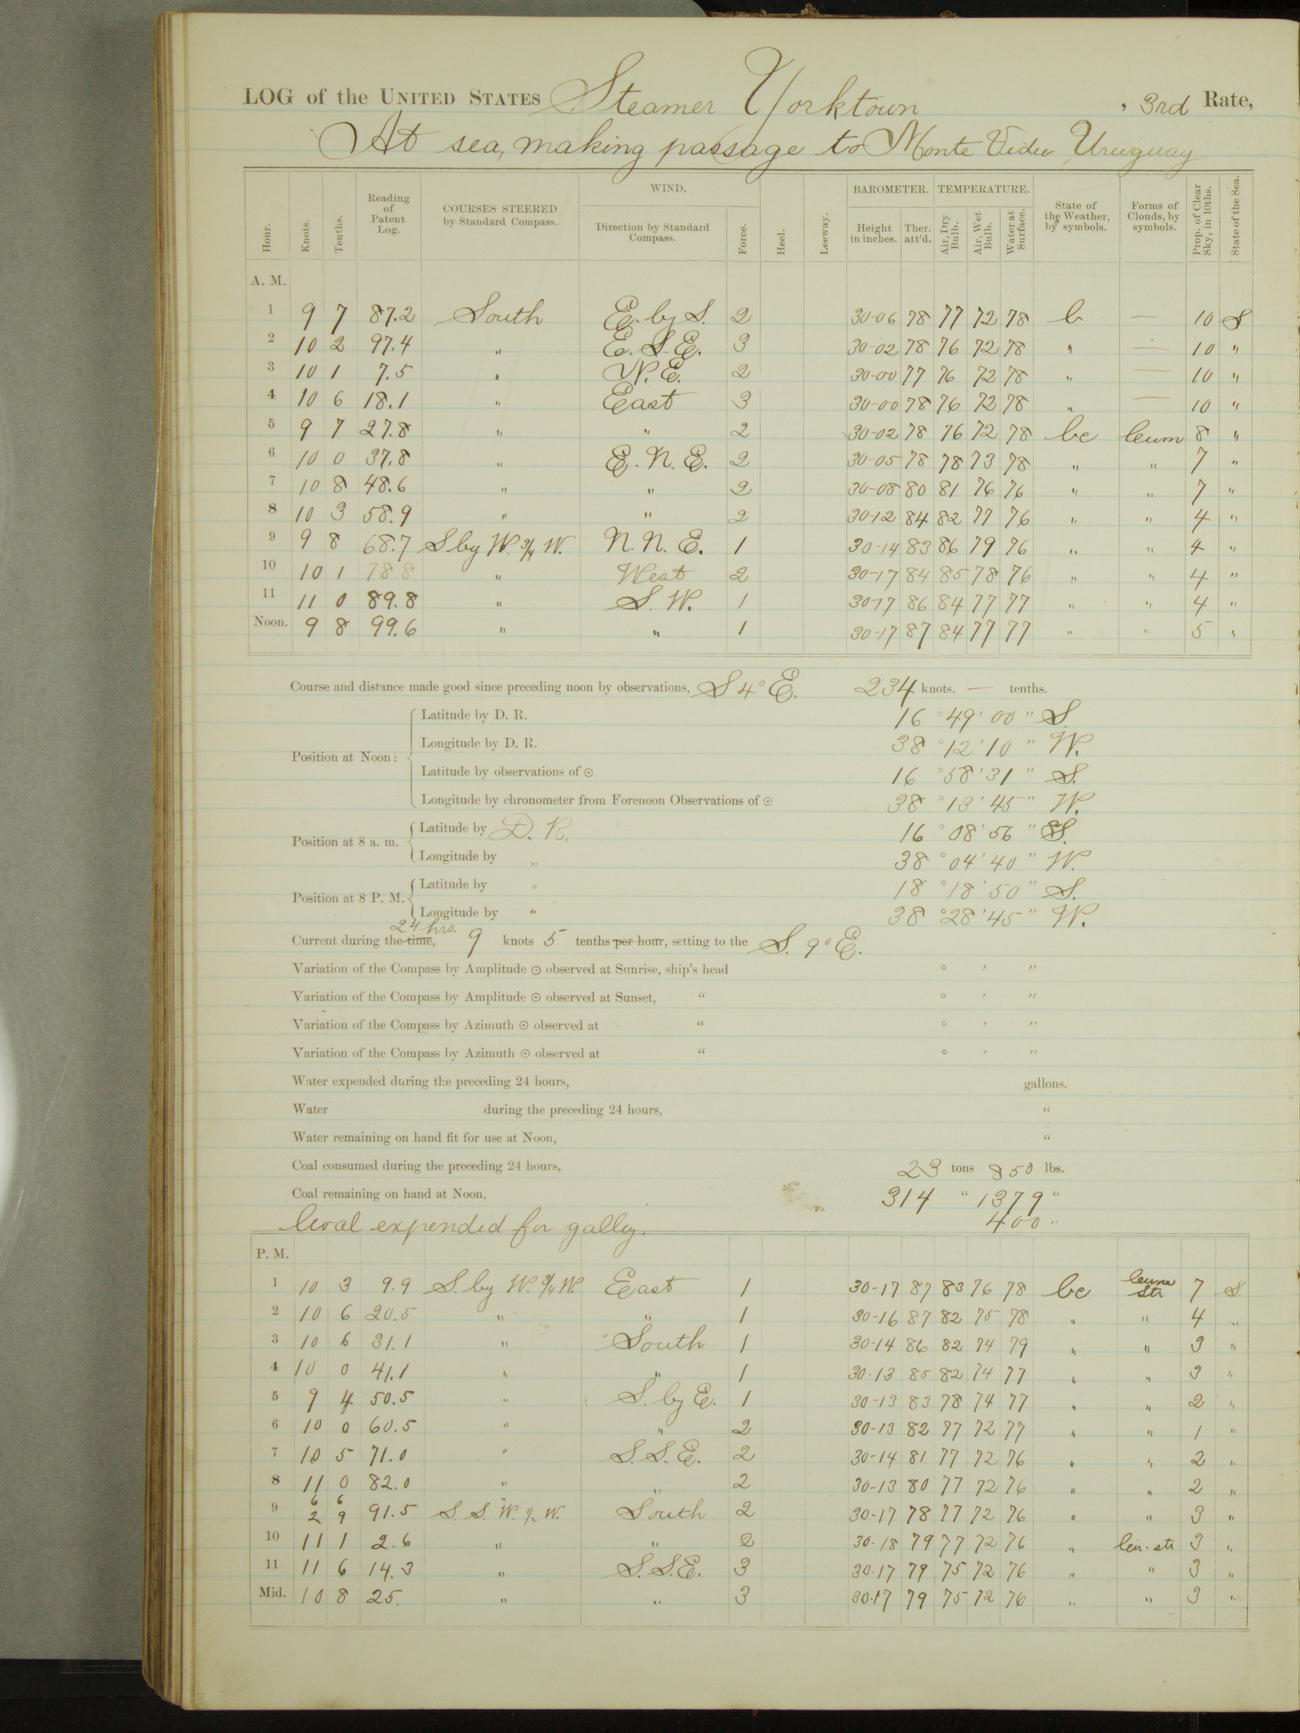 LOG of the UNITED STATES Steamer Yorktown, 3rd Rate,
At sea, making passage to Monte Video Uruguay
Hour. Knots. Tenths. Reading of Patent Log. COURSES STEERED by Standard Compass. WIND. Direction by Standard Compass. Force. Heel. Leeway. BAROMETER. Height in inches. Ther. att'd. TEMPERATURE. Air, Dry Bulb. Air, Wet Bulb. Water at Surface. State of the Weather, by symbols. Forms of Clouds, by symbols. Prop. of Clear Sky, in 10ths. State of the Sea.
A. M.
1 9 7 87.2 South E. by S. 2 30-06 78 77 72 78 b — 10 S
2 10 2 97.4 " E. S. E. 3 30-02 78 76 72 78 " — 10 "
3 10 1 7.5 " N. E. 2 30-00 77 76 72 78 " — 10 "
4 10 6 18.1 " East 3 30-00 78 76 72 78 " — 10 "
5 9 7 27.8 " " 2 30-02 78 76 72 78 bc Cum 8 "
6 10 0 37.8 " E. N. E. 2 30-05 78 78 73 78 " " 7 "
7 10 8 48.6 " " 2 30-08 80 81 76 76 " " 7 "
8 10 3 58.9 " " 2 30-12 84 82 77 76 " " 4 "
9 9 8 68.7 S by W. 3/4 W. N. N. E. 1 30-14 83 86 79 76 " " 4 "
10 10 1 78.8 " West 2 30-17 84 85 78 76 " " 4 "
11 11 0 89.8 " S. W. 1 30-17 86 84 77 77 " " 4 "
Noon. 9 8 99.6 " " 1 30-17 87 84 77 77 " " 5 "
Course and distance made good since preceding noon by observations, S 4° E. 234 knots. — tenths.
Position at Noon: Latitude by D. R. 16 ° 49 ' 00 " S.
Longitude by D. R. 38 ° 12 ' 10 " W.
Latitude by observations of ☉ 16 ° 58 ' 31 " S.
Longitude by chronometer from Forenoon Observations of ☉ 38 ° 13 ' 45 " W.
Position at 8 a. m. Latitude by D. R. 16 ° 08 ' 56 " S.
Longitude by " 38 ° 04 ' 40 " W.
Position at 8 P. M. Latitude by " 18 ° 18 ' 50 " S.
Longitude by " 38 ° 28 ' 45 " W.
24 hrs.
Current during the time, 9 knots 5 tenths per hour, setting to the S. 9° E.
Variation of the Compass by Amplitude ☉ observed at Sunrise, ship's head ° ' "
Variation of the Compass by Amplitude ☉ observed at Sunset, " ° ' "
Variation of the Compass by Azimuth ☉ observed at " ° ' "
Variation of the Compass by Azimuth ☉ observed at " ° ' "
Water expended during the preceding 24 hours, gallons.
Water during the preceding 24 hours, "
Water remaining on hand fit for use at Noon, "
Coal consumed during the preceding 24 hours, 23 tons 850 lbs.
Coal remaining on hand at Noon, 314 " 1379 "
Coal expended for galley. 400 "
P. M.
1 10 3 9.9 S. by W. 3/4 W. East 1 30-17 87 83 76 78 bc Cum Str 7 S.
2 10 6 20.5 " " 1 30-16 87 82 75 78 " " 4 "
3 10 6 31.1 " South 1 30-14 86 82 74 79 " " 3 "
4 10 0 41.1 " " 1 30-13 85 82 74 77 " " 3 "
5 9 4 50.5 " S. by E. 1 30-13 83 78 74 77 " " 2 "
6 10 0 60.5 " " 2 30-13 82 77 72 77 " " 1 "
7 10 5 71.0 " S. S. E. 2 30-14 81 77 72 76 " " 2 "
8 11 0 82.0 " " 2 30-13 80 77 72 76 " " 2 "
9 6 6 2 9 91.5 S. S. W. 1/2 W. South 2 30-17 78 77 72 76 " " 3 "
10 11 1 2.6 " " 2 30-18 79 77 72 76 " Cir-str 3 "
11 11 6 14.3 " S. S. E. 3 30-17 79 75 72 76 " " 3 "
Mid. 10 8 25. " " 3 30-17 79 75 72 76 " " 3 "